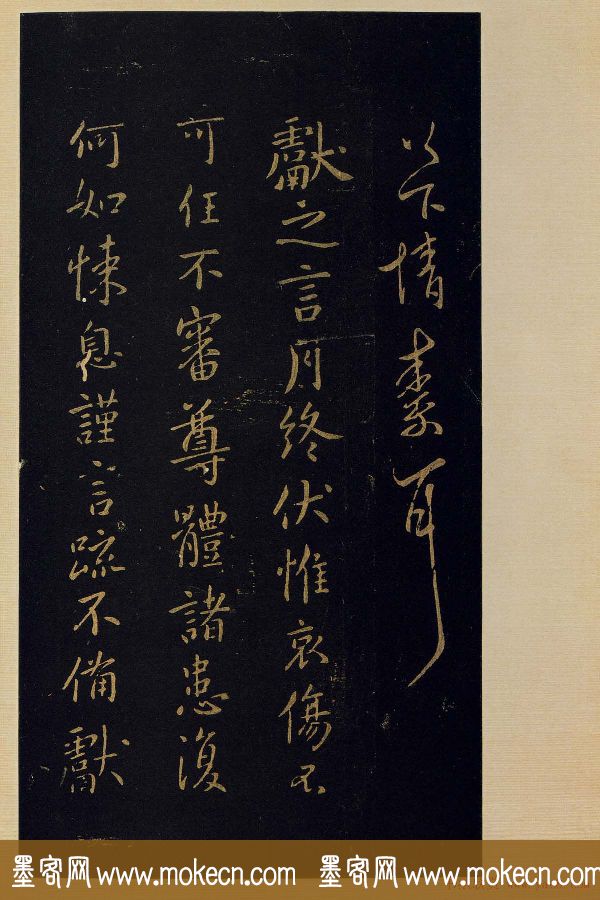 以下情素耳
獻之言月終伏惟哀傷不
可任不審尊體諸患復
何如悚息謹言疏不備獻
墨客网 www.mokecn.com 墨客网 www.mokecn.com